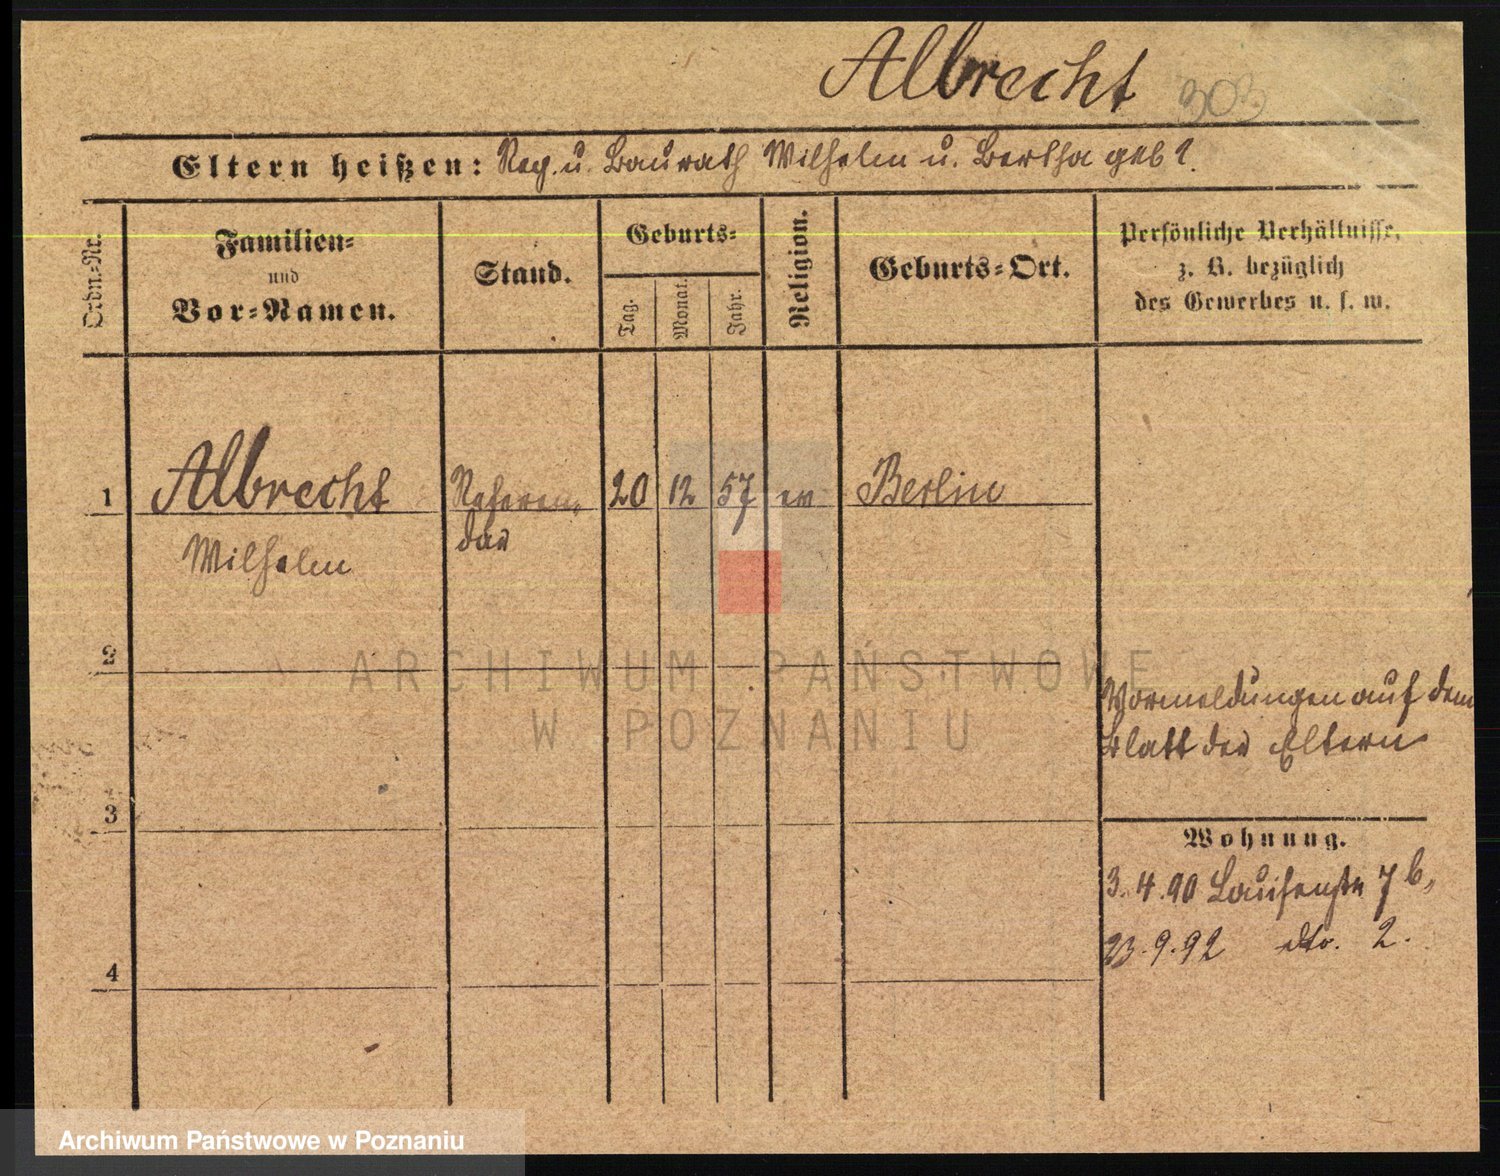 Albrecht 303
Eltern heißen: Reg. u. Baurath Wilhelm u. Bertha geb ?.
Ordn.-Nr.
Familien-
und
Vor-Namen.
Stand.
Geburts-
Tag.
Monat.
Jahr.
Religion.
Geburts-Ort.
Persönliche Verhältnisse,
z. B. bezüglich
des Gewerbes u. s. w.
1 Albrecht Referen- 20 12 57 ev Berlin
Wilhelm dar
2
ARCHIWUM PAŃSTWOWE
W POZNANIU
Vormeldungen auf dem
Blatt der Eltern
3
Wohnung.
3.4.90 Louisenstr 7b,
23.9.92 dto. 2.
4
Archiwum Państwowe w Poznaniu